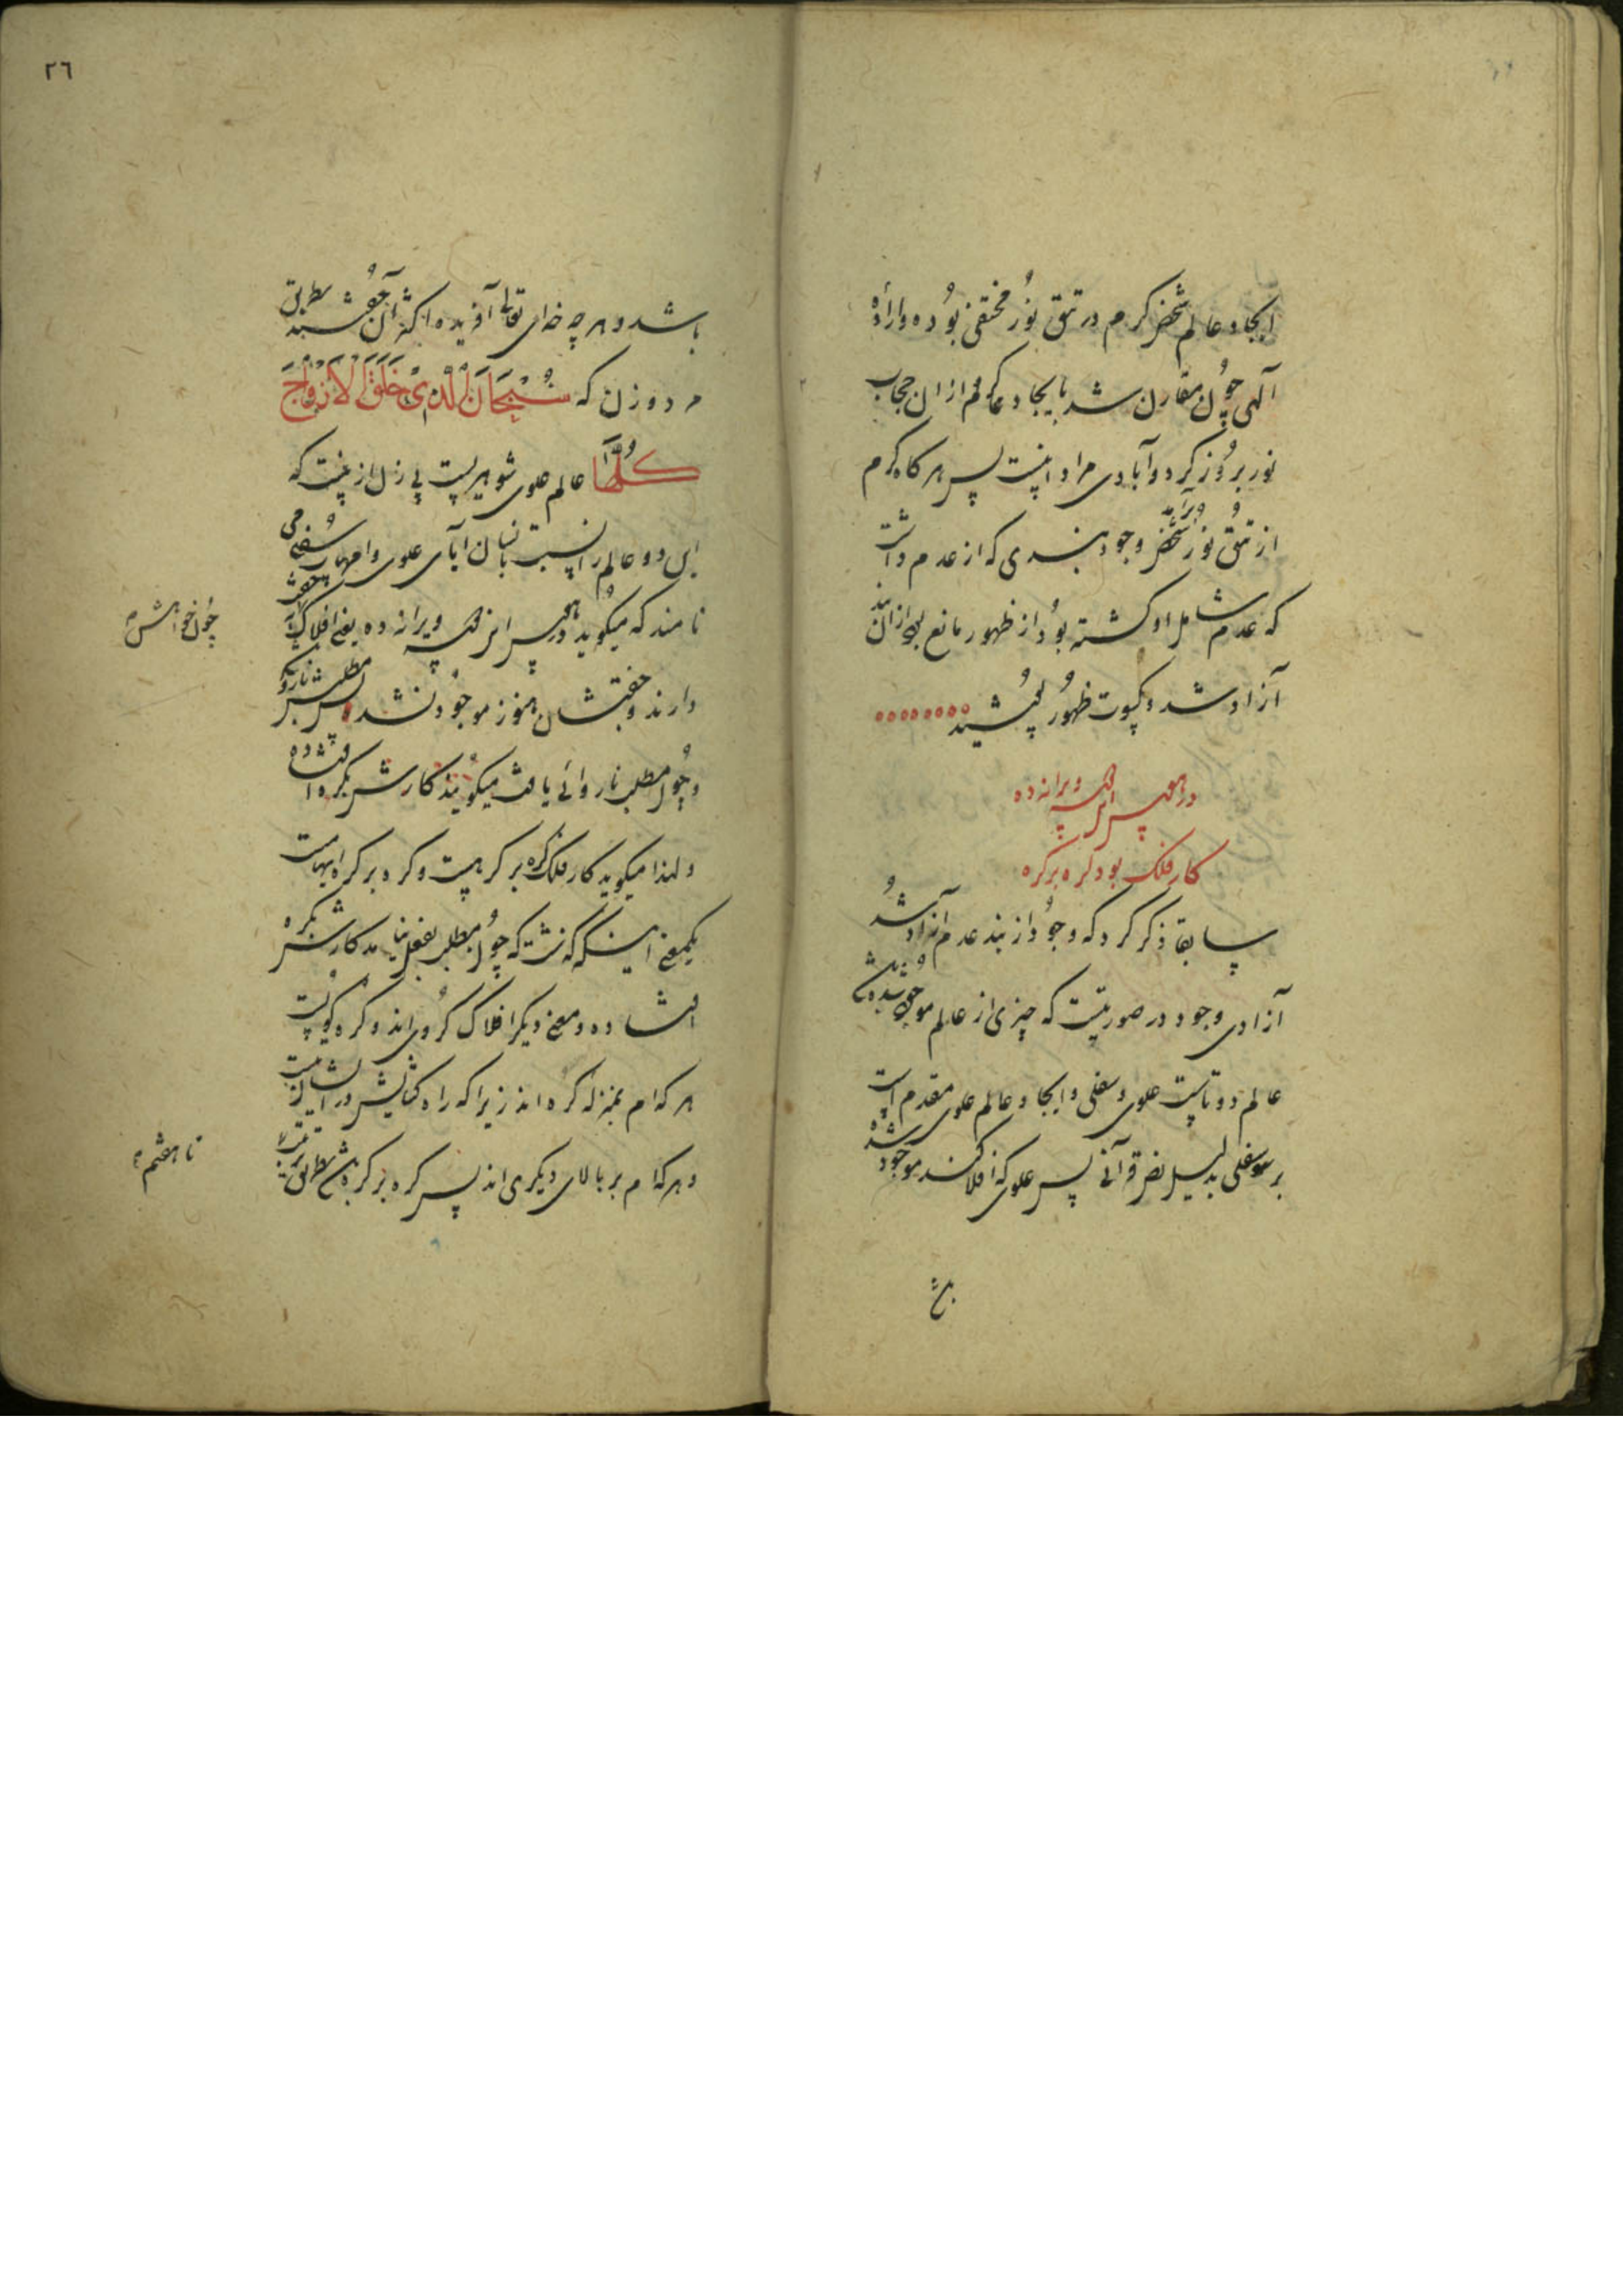 ایجاد عالم شخص کرم در تتق نور مختفی بوده و اراده
الهی چون مقارن شد بایجاد عالم کرم از ان حجاب
نور بروز کرد و آبادی مراد اینست پس هر گاه کرم
از تتق نور برآمد شخص وجود بندی که از عدم داشت
که عدم شامل او گشته بود از ظهور مانع بود از ان بند
آزاد شد و کسوت ظهور پوشید
در هوس این ویرانه ده
کار فلک بود گره بر گره
سابقا ذکر کرد که وجود از بند عدم آزاد شد
آزادی وجود در صورتیست که چیزی از عالم موجود شده
عالم دو تاست علوی و سفلی و ایجاد عالم علوی مقدم است
بر سفلی بدلیل نص قرآنی پس علوی که افلاکند موجود شده
٢٦
باشد و هر چه خدای تعالی آفریده اکثر آن جفتند بطریق
مرد و زن که سُبْحَانَ الَّذِی خَلَقَ الْاَزْوَاجَ
کُلَّهَا عالم علوی شوهریست بی زن از ینست که
این دو عالم را نسبت بانسان آبای علوی و امهات سفلی می
نامند که میگوید در هوس این ویرانه ده یعنی افلاک جفت
چون خواهش
دارند و جفتشان هنوز موجود نشده مطلبش ناروا
و چون مطلب ناروائی یافت میگویند کارش بگره افتاده
و لهذا میگوید کار فلک گره بر گرهست و گره بر گره ایهامست
یکمعنی اینکه گذشت که چون مطلب بفعل نیامد کارش بگره
افتاده و معنی دیگر افلاک کروی اند و گره گویست
هر کدام بمنزله گره اند زیرا که راه گشایش در ایشان نیست
و هر کدام بر بالای دیگری اند پس گره بر گره باشد بطریق
تا هفتم